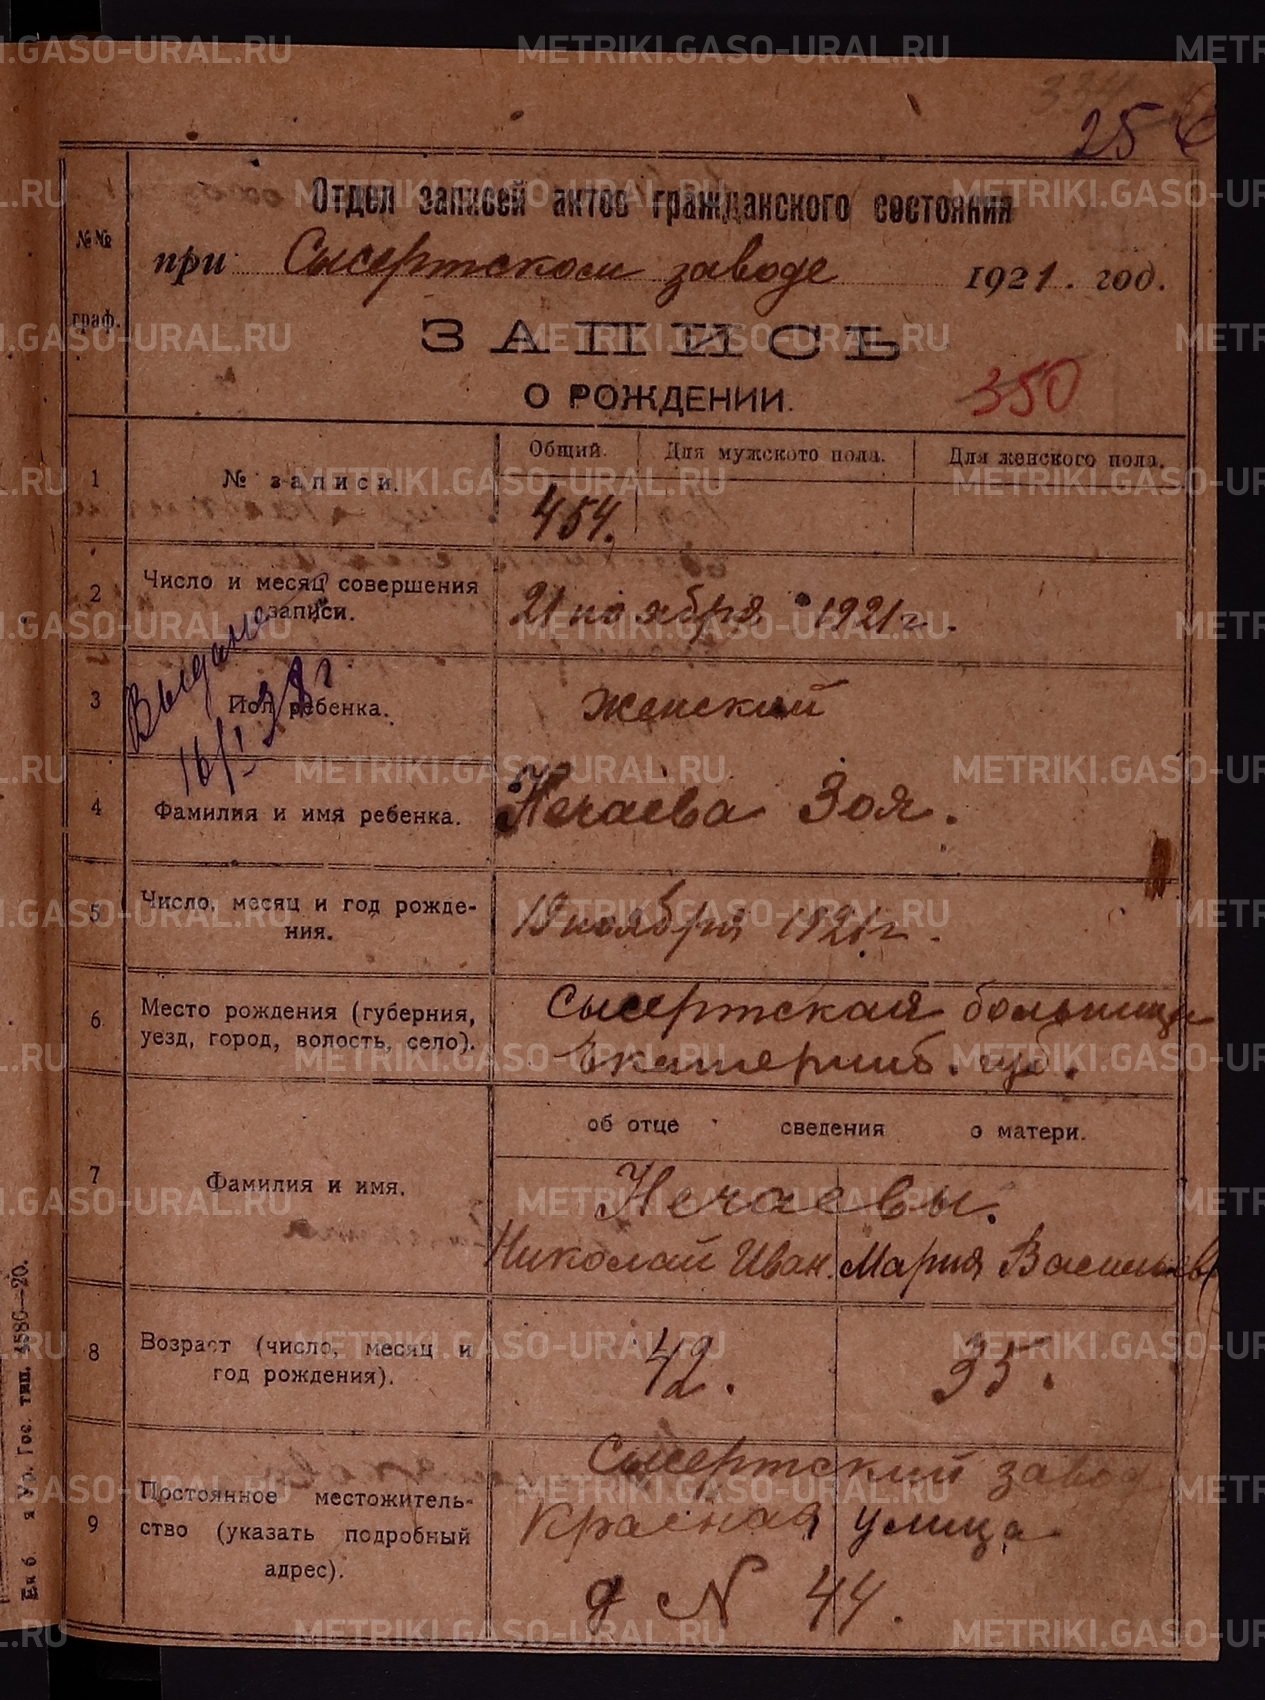 334
256
Отдел записей актов гражданского состояния
№№ граф.
при Сысертском заводе 1921. год.
ЗАПИСЬ
О РОЖДЕНИИ.
350
1
№ записи.
Общий. Для мужского пола. Для женского пола.
454.
2
Число и месяц совершения записи.
21 ноября 1921 г.
Выдано
16/I 38 г
3
Пол ребенка.
женский
4
Фамилия и имя ребенка.
Нечаева Зоя.
5
Число, месяц и год рожде-
ния.
19 ноября 1921 г.
6
Место рождения (губерния,
уезд, город, волость, село).
Сысертская больница
Екатеринб. губ.
об отце сведения о матери.
7
Фамилия и имя.
Нечаевы.
Николай Иван. Мария Васильев
8
Возраст (число, месяц и
год рождения).
42. 35.
9
Постоянное местожитель-
ство (указать подробный
адрес).
Сысертский завод
Красная улица
д N 44.
Ек б. я Ур. Гос. тип. 4580—20.
METRIKI.GASO-URAL.RU